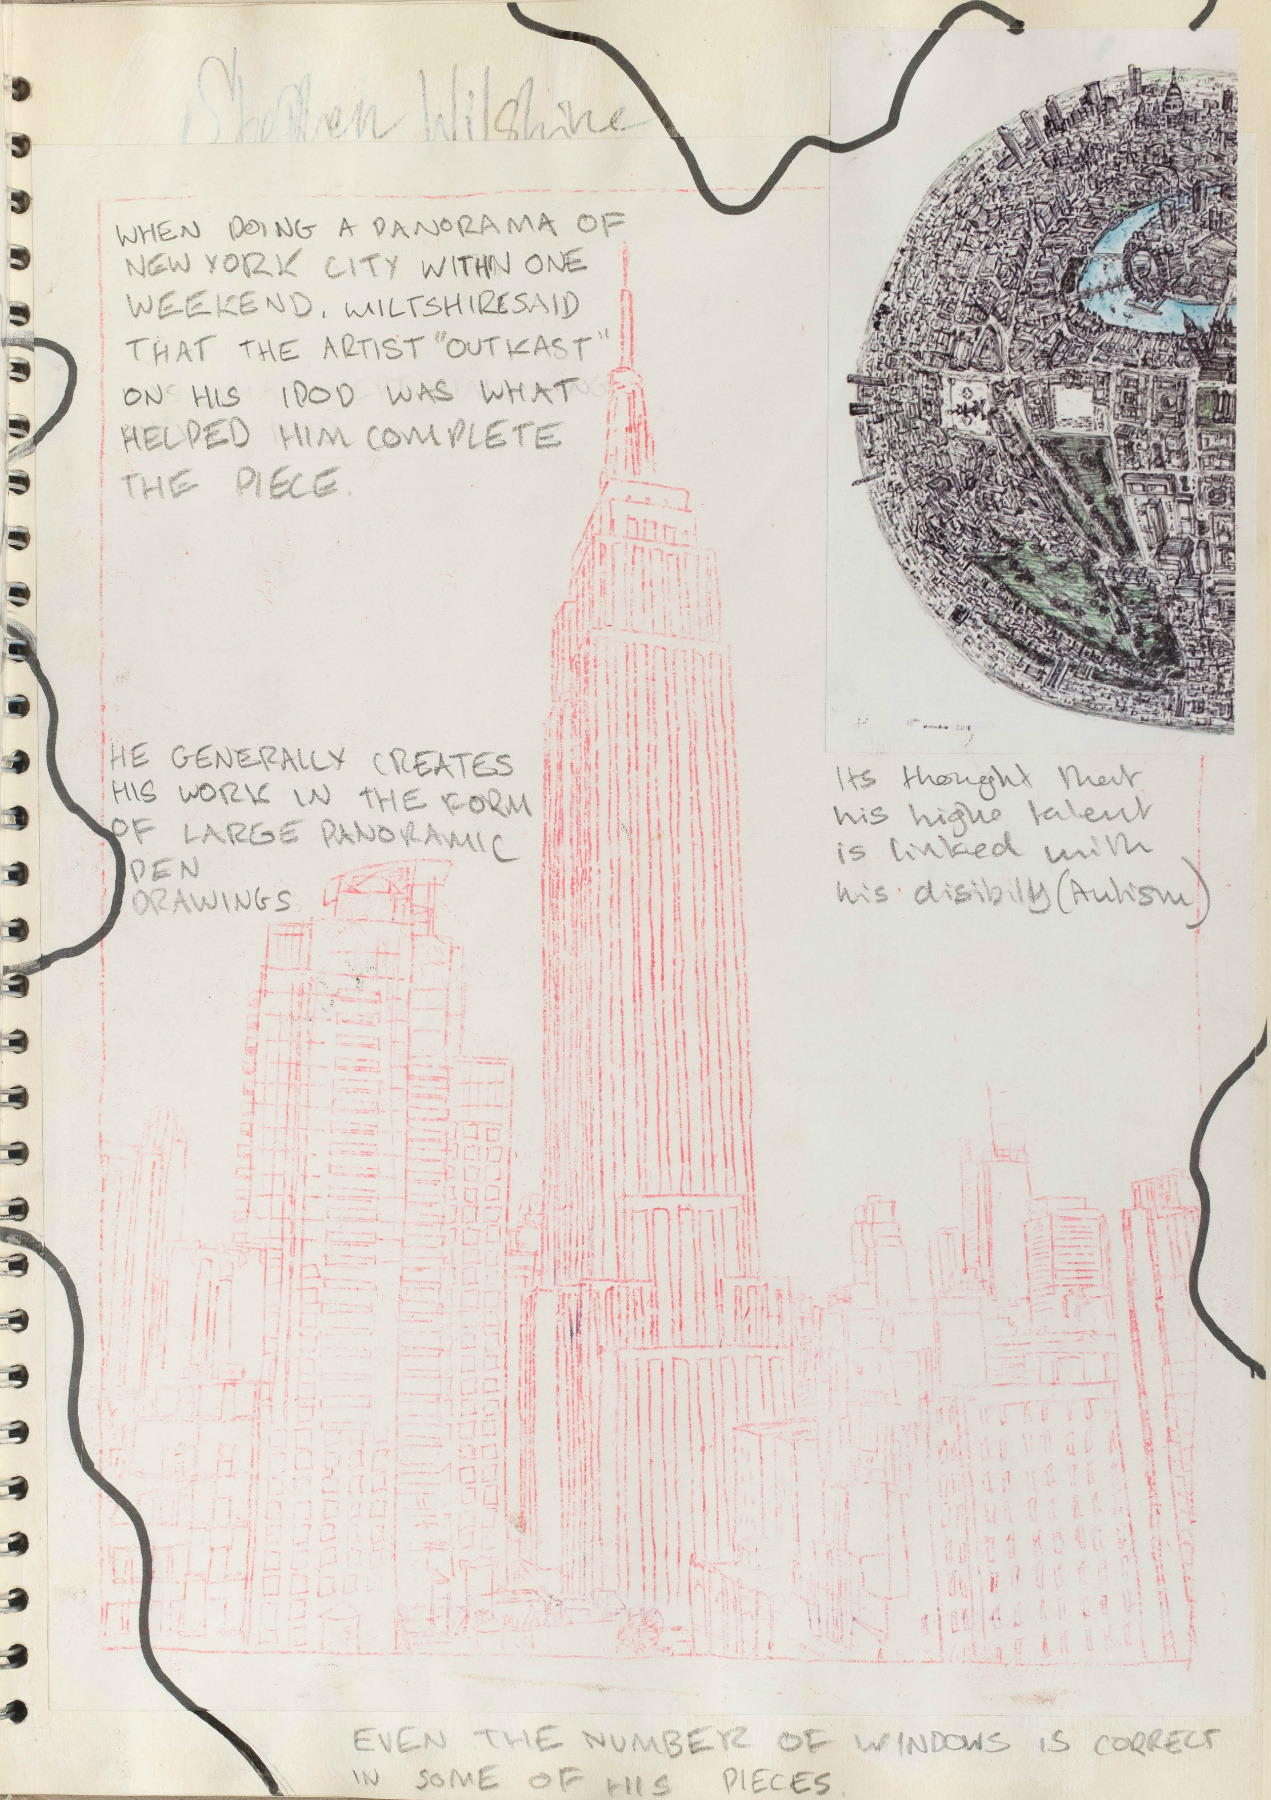 Stephen Wilshire
WHEN DOING A PANORAMA OF
NEW YORK CITY WITHIN ONE
WEEKEND, WILTSHIRE SAID
THAT THE ARTIST "OUTKAST"
ON HIS IPOD WAS WHAT
HELPED HIM COMPLETE
THE PIECE.
HE GENERALLY CREATES
HIS WORK IN THE FORM
OF LARGE PANORAMIC
PEN
DRAWINGS
Its thought that
his highe talent
is linked with
his disibilty (Autism)
EVEN THE NUMBER OF WINDOWS IS CORRECT
IN SOME OF HIS PIECES.